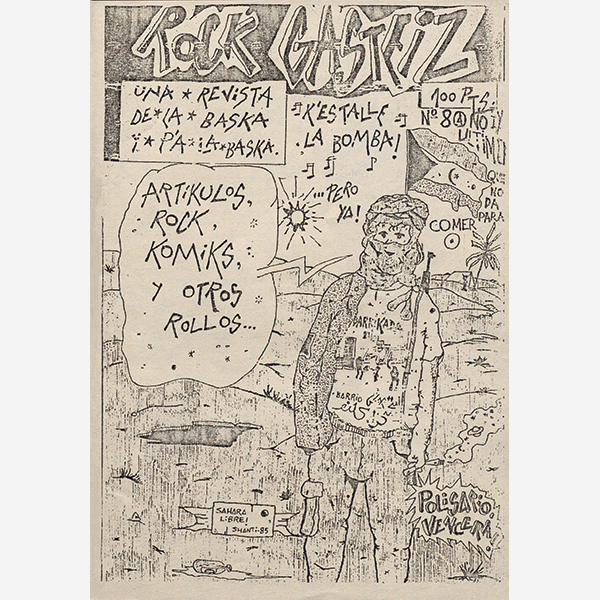 ROCK GASTEIZ
UNA * REVISTA
DE * LA * BASKA
Y * P'A * LA * BASKA.
K'ESTALLE
LA BOMBA!
...PERO
YA!
100 PTS.
Nº 8 NO Y
ULTIMO
QUE
NO
DA
PARA
COMER
ARTIKULOS,
ROCK,
KOMIKS,
Y OTROS
ROLLOS...
BARRIO
SAHARA
LIBRE!
SHANTI-85
POLISARIO
VENCERA!